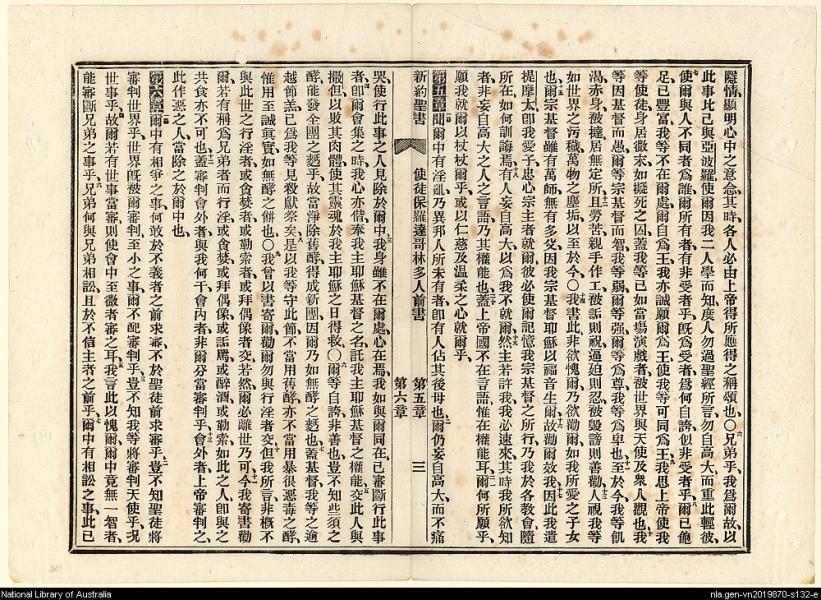 隱情顯明心中之意念其時各人必由上帝得所應得之稱頌也〇兄弟乎我爲爾故以
此事比己與亞波羅使爾因我二人學而知度人勿過聖經所言勿自高大而重此輕彼
使爾與人不同者爲誰爾所有者有非受者乎旣爲受者爲何自誇似非受者乎爾已飽
足已豐富我等不在爾處爾自爲王我亦誠願爾爲王使我等可同爲王我思上帝使我
等使徒身居微末如擬死之囚蓋我等已如當場演戲者被世界與天使及衆人觀也我
等因基督而愚爾等宗基督而智我等弱爾等强爾等爲尊我等爲卑也至於今我等飢
渴赤身被撻居無定所且勞苦親手作工被詬則祝逼迫則忍被毀謗則善勸人視我等
如世界之污穢萬物之塵垢以至於今〇我書此非欲愧爾乃欲勸爾如我所愛之子女
也爾宗基督雖有萬師無有多父因我宗基督耶穌以福音生爾故勸爾效我因此我遣
提摩太卽我愛子忠心宗主者就爾彼必使爾記憶我宗基督之所行乃我於各教會隨
所在如何訓誨焉有人妄自高大以爲我不就爾然主若許我我必速來其時我所欲知
者非妄自高大之人之言語乃其權能也蓋上帝國不在言語惟在權能耳爾何所願乎
願我就爾以杖杖爾乎或以仁慈及温柔之心就爾乎
第五章聞爾中有淫亂乃異邦人所未有者卽有人佔其後母也爾仍妄自高大而不痛
新約聖書 使徒保羅達哥林多人前書 第五章 第六章 三
哭使行此事之人見除於爾中我身雖不在爾處心在焉我如與爾同在已審斷行此事
者卽爾會集之時我心亦偕奉我主耶穌基督之名託我主耶穌基督之權能交此人與
撒但以敗其肉體使其靈魂於我主耶穌之日得救〇爾等自誇非善也豈不知些須之
酵能發全團之麪乎故當淨除舊酵得成新團因爾乃如無酵之麪也蓋基督我等之逾
越節羔已爲我等見殺獻祭矣是以我等守此節不當用舊酵亦不當用暴很惡毒之酵
惟用至誠眞實如無酵之餅也〇我曾以書寄爾勸爾勿與行淫者交但我所言非槪不
與此世之行淫者或貪婪者或勒索者或拜偶像者交若然爾必離世乃可今我寄書勸
爾若有稱爲兄弟者而行淫或貪婪或拜偶像或詬罵或醉酒或勒索如此之人卽與之
共食亦不可也蓋審判會外者與我何干會內者非爾分當審判乎會外者上帝審判之
此作惡之人當除之於爾中也
第六章爾中有相爭之事何敢於不義者之前求審不於聖徒前求審乎豈不知聖徒將
審判世界乎世界旣被爾審判至小之事爾不配審判乎豈不知我等將審判天使乎况
世事乎故爾若有世事當審則使會中至微者審之乎我言此以愧爾爾中竟無一智者
能審斷兄弟之事乎兄弟何與兄弟相訟且於不信主者之前乎爾中有相訟之事此已
National Library of Australia
nla.gen-vn2019870-s132-e